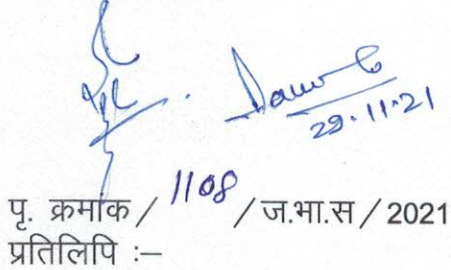 29.11.21
पृ. क्रमांक / 1108 / ज.भा.स / 2021
प्रतिलिपि :–